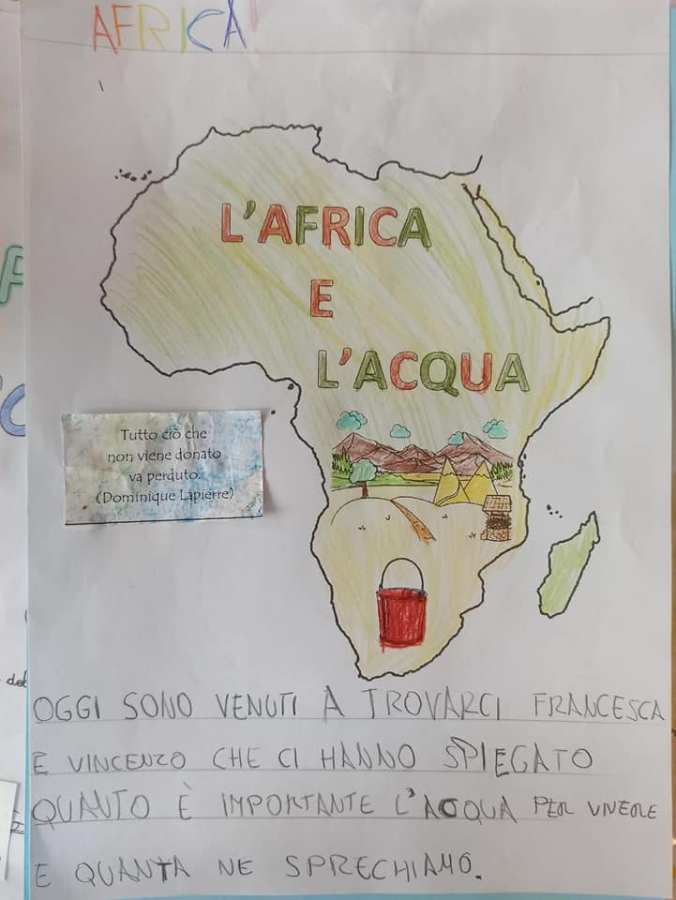 AFRICA
L'AFRICA
E
L'ACQUA
Tutto ciò che
non viene donato
va perduto.
(Dominique Lapierre)
OGGI SONO VENUTI A TROVARCI FRANCESCA
E VINCENZO CHE CI HANNO SPIEGATO
QUANTO È IMPORTANTE L'ACQUA PER VIVERE
E QUANTA NE SPRECHIAMO.